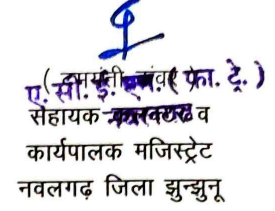 ( दमयंती कंवर )
ए. सी. ई. एम. ( फा. ट्रे. )
सहायक कलक्टर व
कार्यपालक मजिस्ट्रेट
नवलगढ़ जिला झुन्झुनू